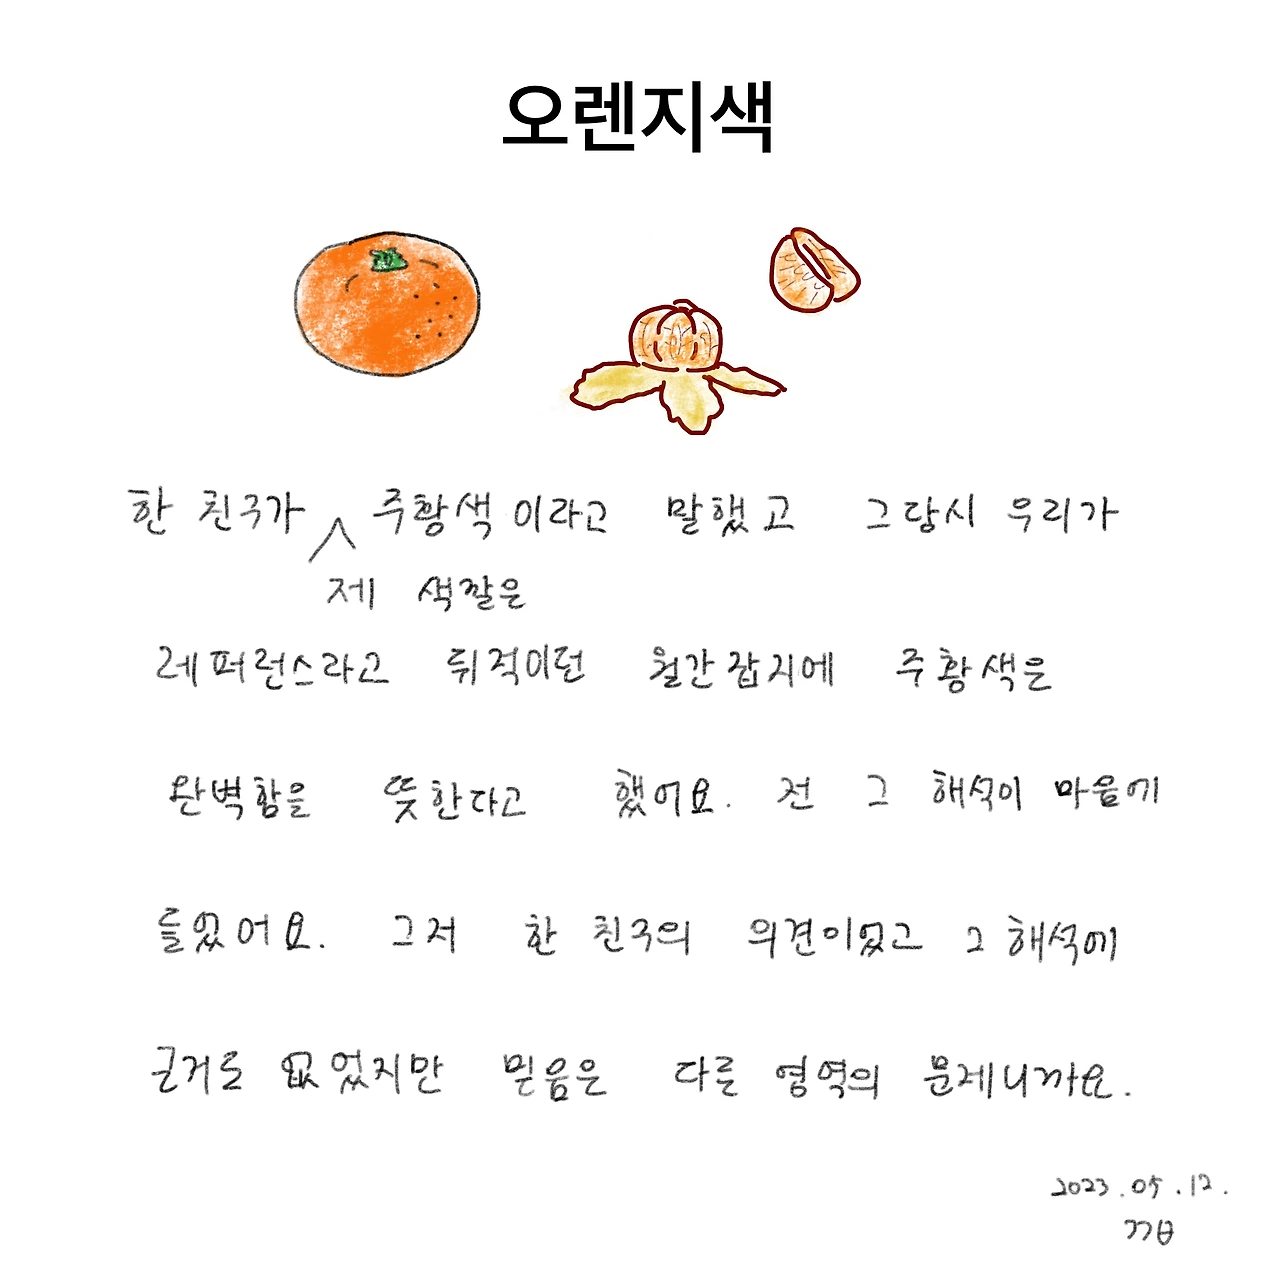 오렌지색
한 친구가 주황색이라고 말했고 그당시 우리가
제 색깔은
레퍼런스라고 뒤적이던 월간잡지에 주황색은
완벽함을 뜻한다고 했어요. 전 그 해석이 마음에
들었어요. 그저 한 친구의 의견이었고 그 해석에
근거도 없었지만 믿음은 다른 영역의 문제니까요.
2023.05.12.